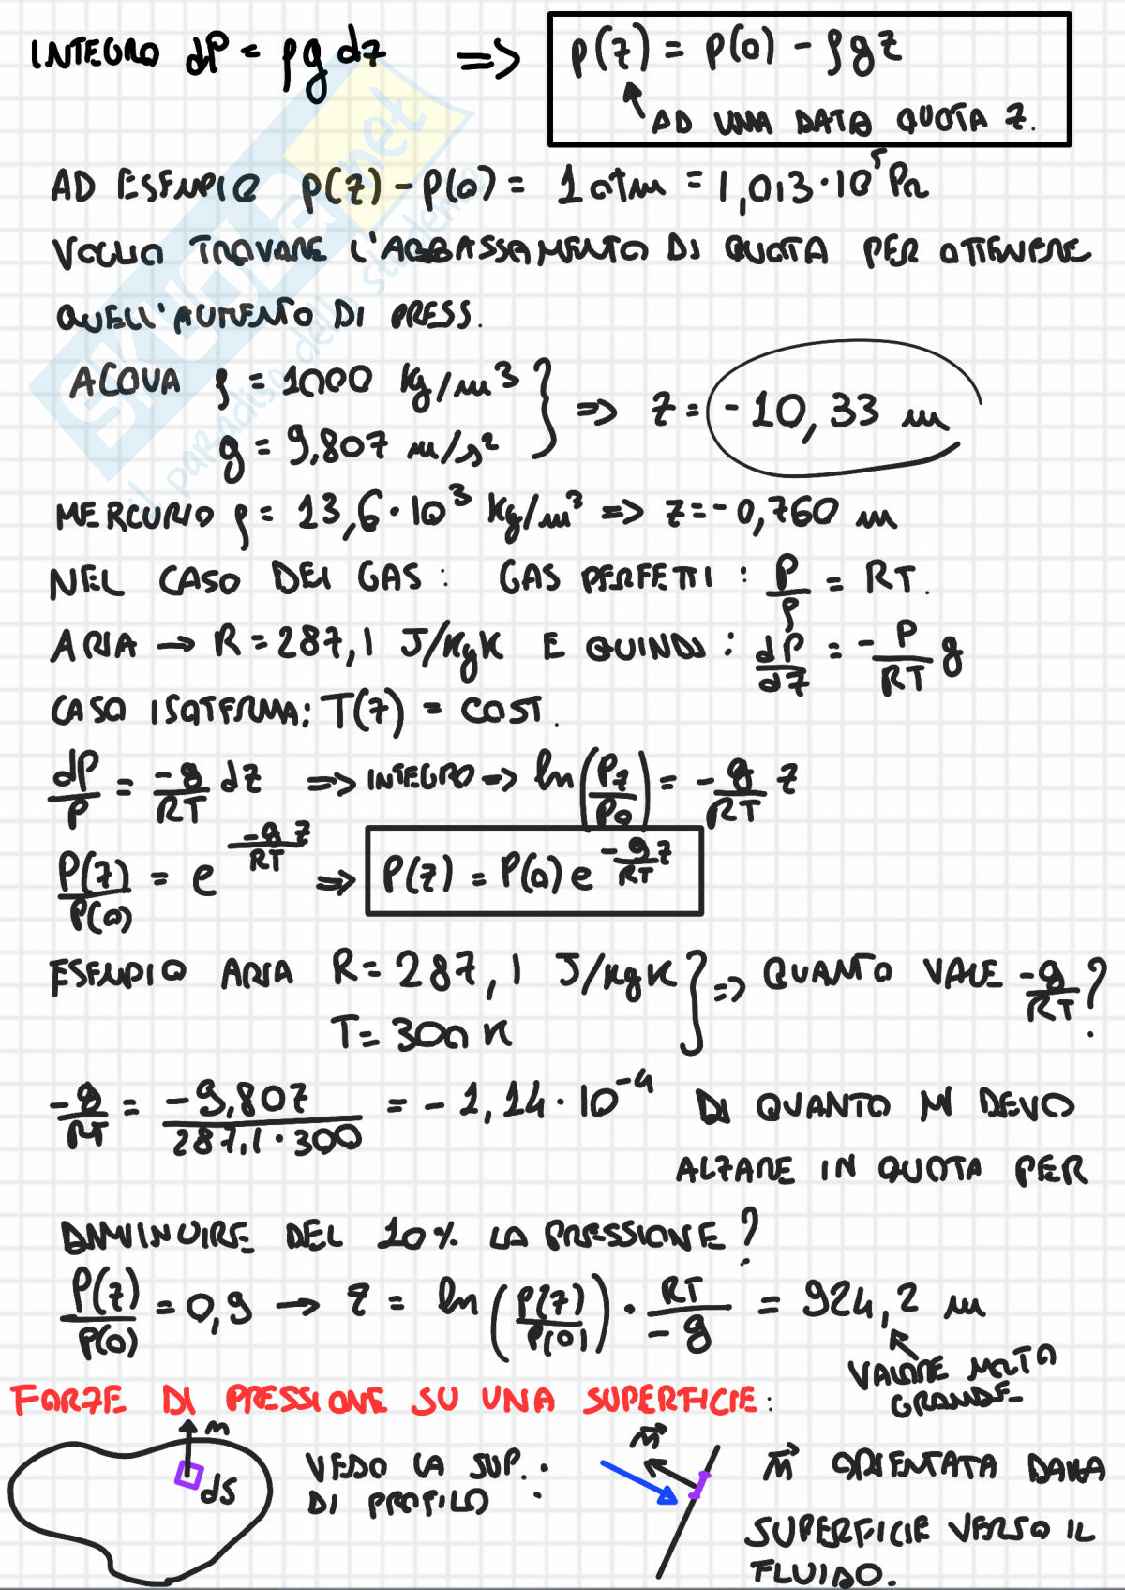 INTEGRO dP = ρg dz => p(z) = p(0) - ρgz
AD UNA DATA QUOTA z.
AD ESEMPIO p(z) - p(0) = 1 atm = 1,013·10⁵ Pa
VOGLIO TROVARE L'ABBASSAMENTO DI QUOTA PER OTTENERE
QUELL'AUMENTO DI PRESS.
ACQUA ρ = 1000 kg/m³ } => z = -10,33 m
g = 9,807 m/s²
MERCURIO ρ = 13,6·10³ kg/m³ => z = -0,760 m
NEL CASO DEI GAS: GAS PERFETTI: P/ρ = RT.
ARIA → R = 287,1 J/kgK E QUINDI: dP/dz = -P/RT g
CASO ISOTERMA: T(z) = COST.
dP/P = -g/RT dz => INTEGRO => ln(Pz/P0) = -g/RT z
P(z)/P(0) = e^(-g z/RT) => P(z) = P(0) e^(-g/RT z)
ESEMPIO ARIA R = 287,1 J/kgK } => QUANTO VALE -g/RT?
T = 300 K
-g/RT = -9,807/287,1·300 = -1,14·10⁻⁴ DI QUANTO MI DEVO
ALZARE IN QUOTA PER
DIMINUIRE DEL 10% LA PRESSIONE?
P(z)/P(0) = 0,9 → z = ln(P(z)/P(0)) · RT/-g = 924,2 m
VALORE MOLTO
GRANDE
FORZE DI PRESSIONE SU UNA SUPERFICIE:
n
dS
VEDO LA SUP. :
DI PROFILO
n⃗
n⃗ ORIENTATA DALLA
SUPERFICIE VERSO IL
FLUIDO.
SKUOLA.net
il paradiso dello studente